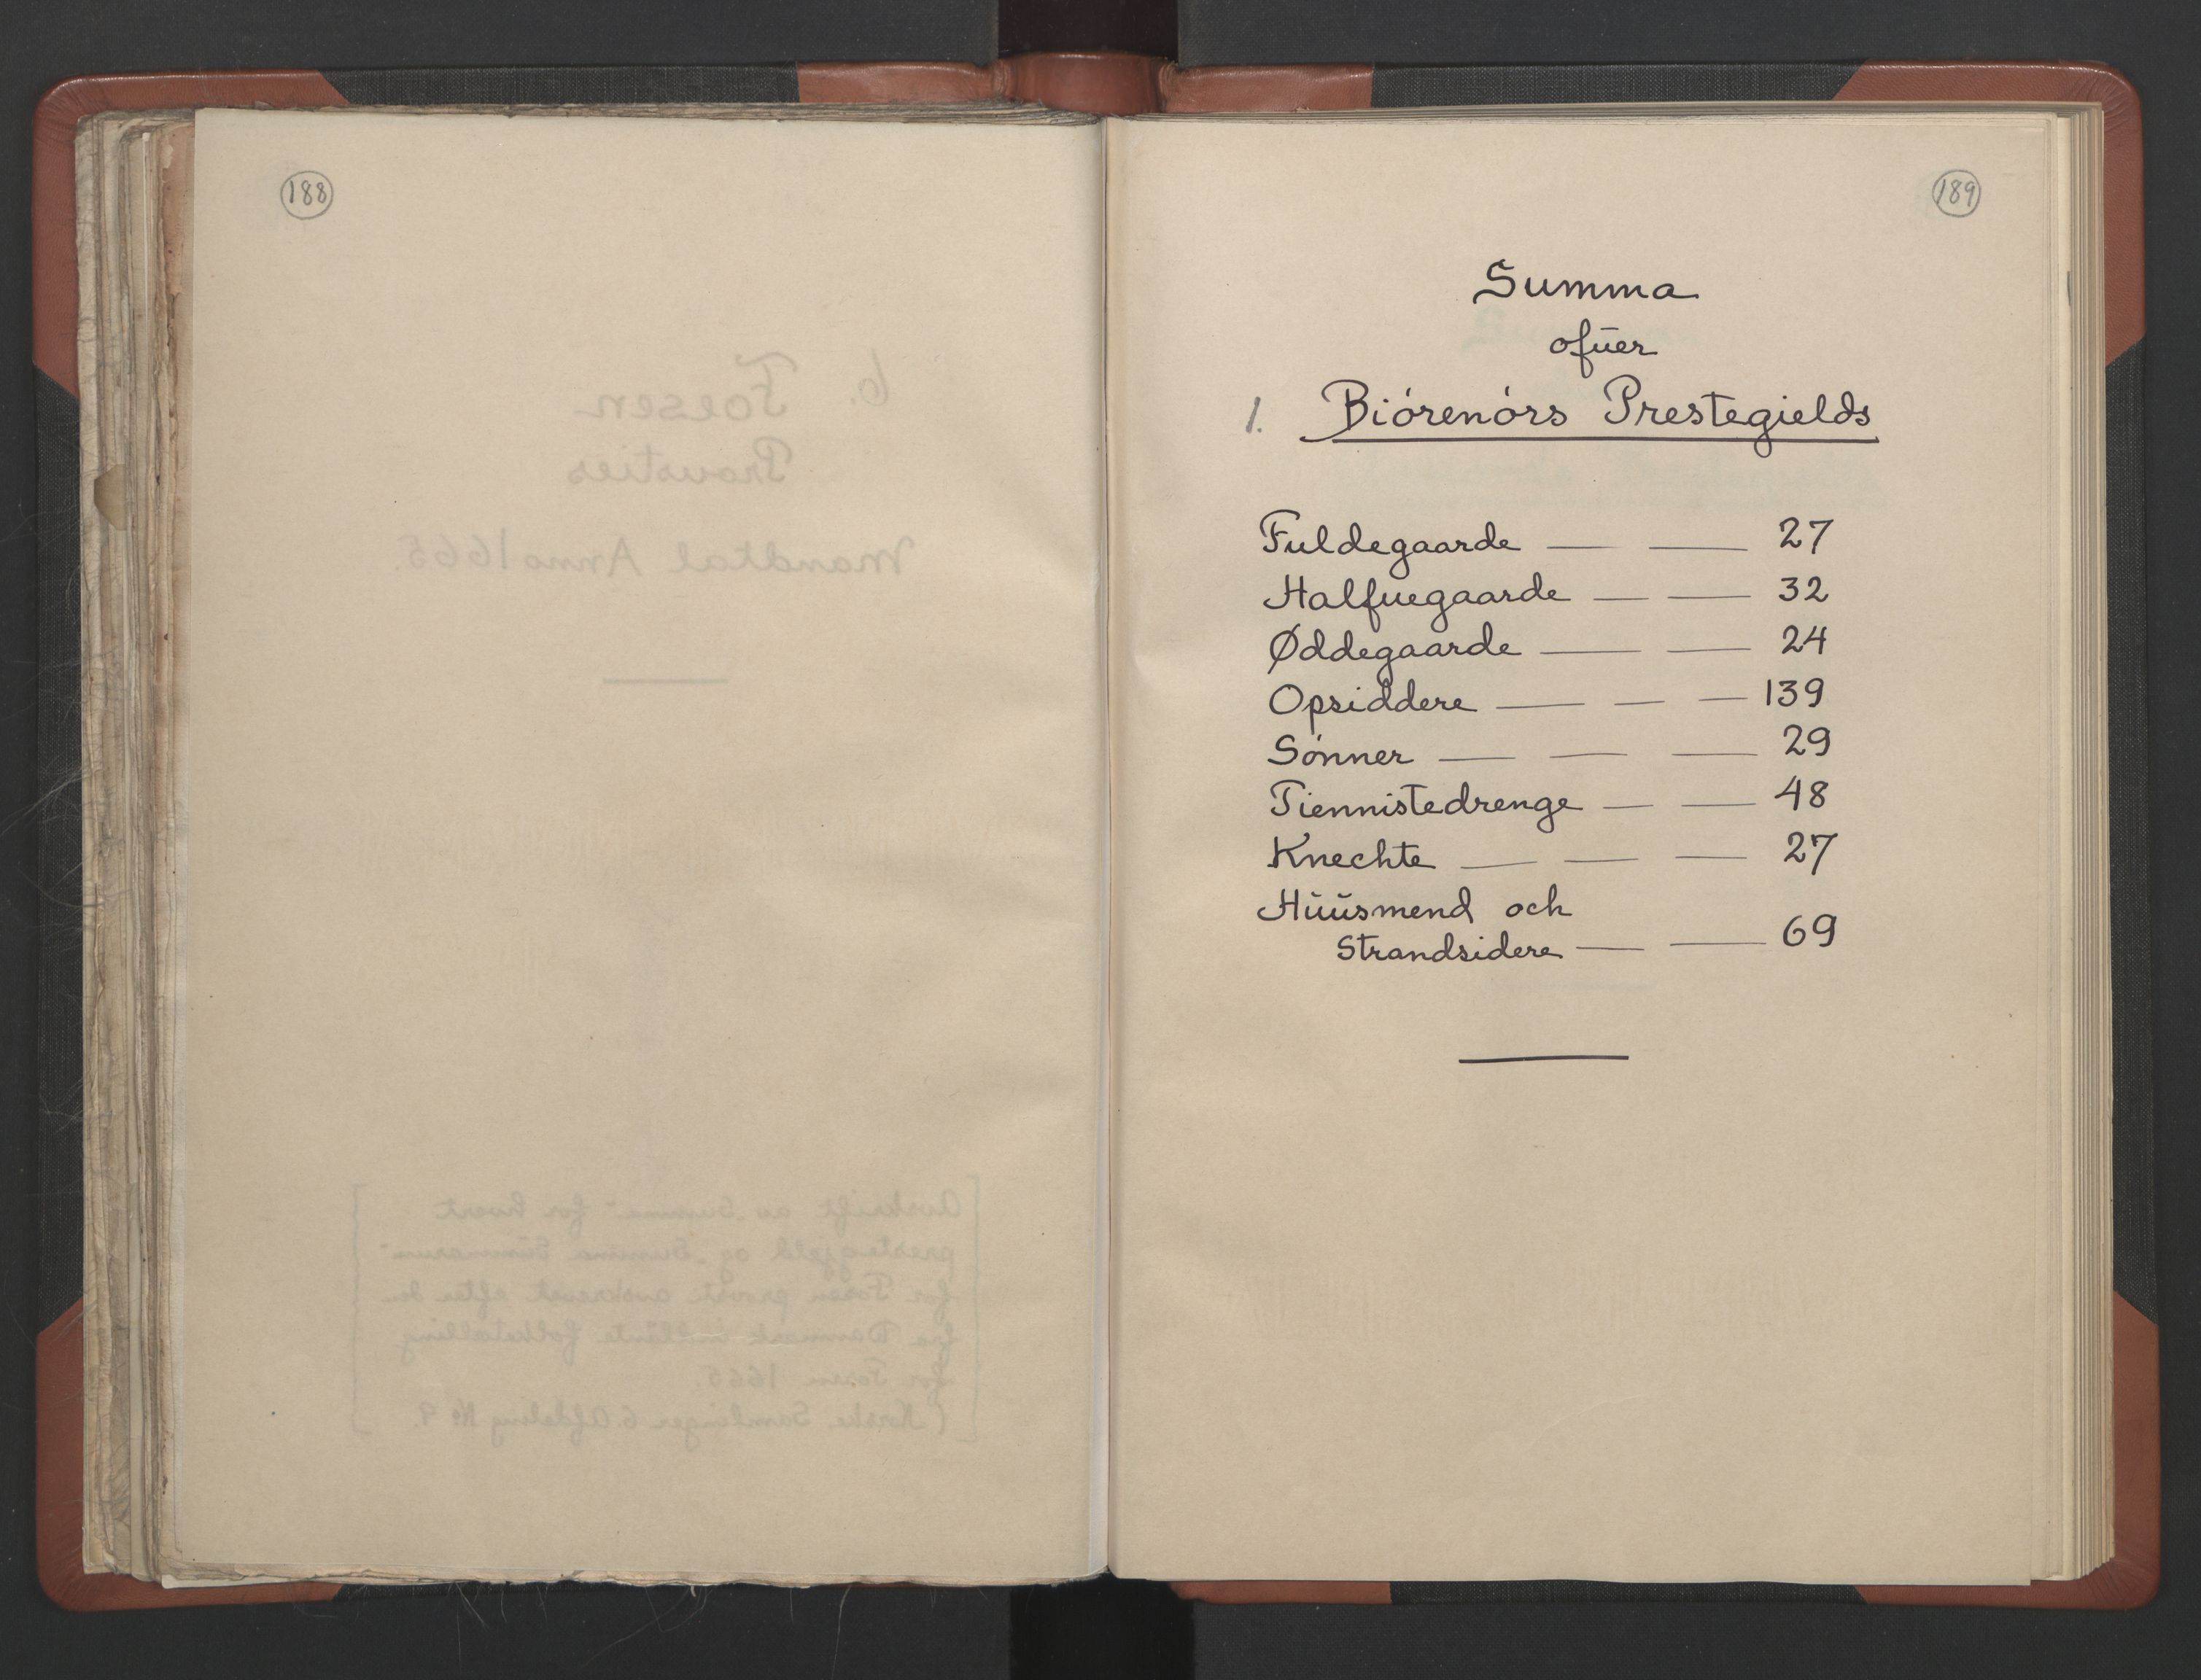 188
6. Foesen
Prousties
Mandtal Anno 1665.
Avskrift av "Summa" for hvert
prestegjeld og "Summa Summarum"
for Fosen provsti avskrevet efter den
fra Danmark innlånte folketelling
for Fosen 1665.
(Norske Samlinger 6. Afdeling No 9.
189
Summa
ofŭer
1. Biórenórs Prestegields
Fuldegaarde — — 27
Halfuegaarde — — 32
Øddegaarde — — 24
Opsiddere — — — 139
Sónner — — — 29
Tiennistedrenge — — 48
Knechte — — — 27
Hŭŭsmend och
Strandsidere — — 69